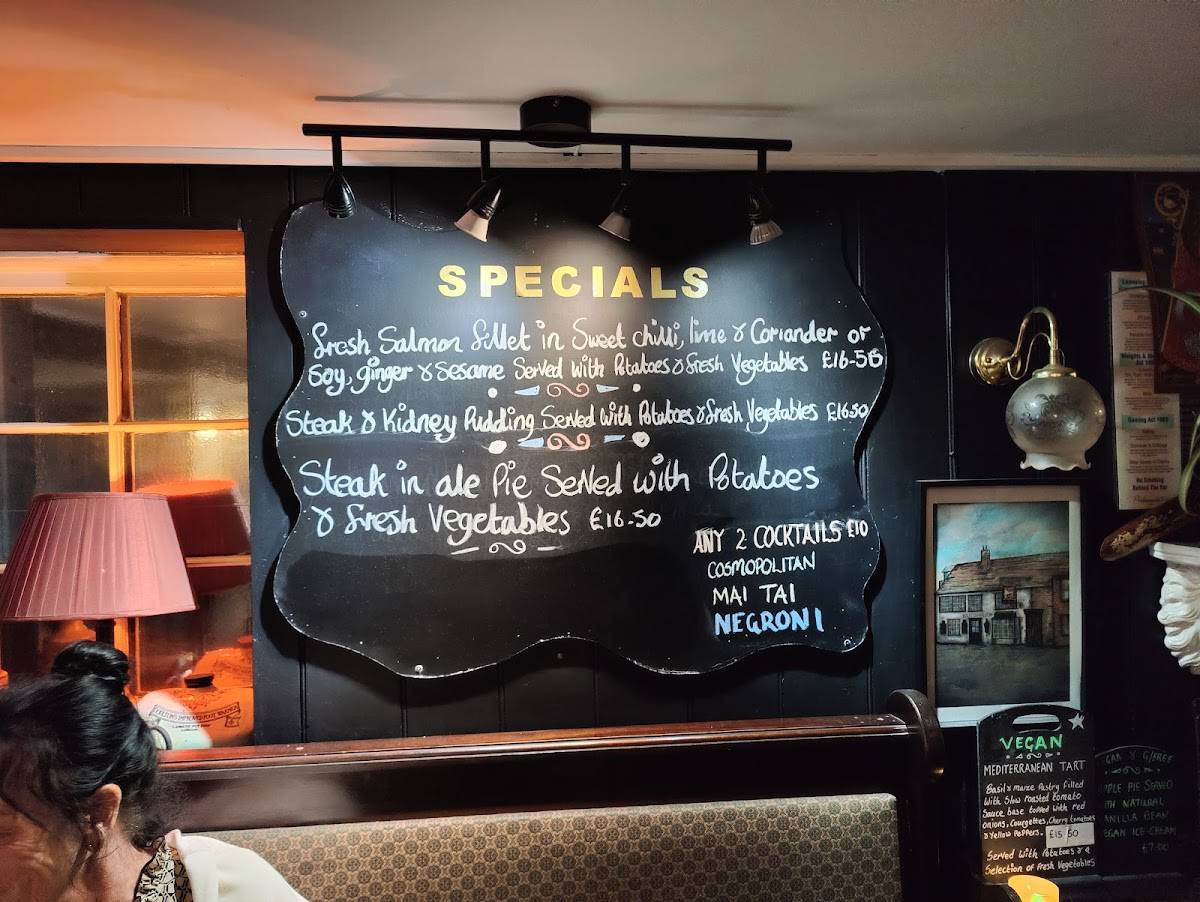 SPECIALS
Fresh Salmon fillet in Sweet chilli, lime & Coriander or
Soy, ginger & Sesame Served with Potatoes & Fresh Vegetables £16-50
Steak & Kidney Pudding Served with Potatoes & Fresh Vegetables £16.50
Steak in ale Pie Served with Potatoes
& Fresh Vegetables £16-50
ANY 2 COCKTAILS £10
COSMOPOLITAN
MAI TAI
NEGRONI
VEGAN
MEDITERRANEAN TART
Basil & maize Pastry filled
with Slow roasted tomato
Sauce base topped with red
onions, Courgettes, Cherry tomatoes
& Yellow Peppers. £15.50
Served with Potatoes & a
Selection of Fresh Vegetables
& G/FREE
PLE PIE SERVED
TH NATURAL
ANILLA BEAN
EGAN ICE-CREAM
£7.00
No Smoking
Behind The Bar